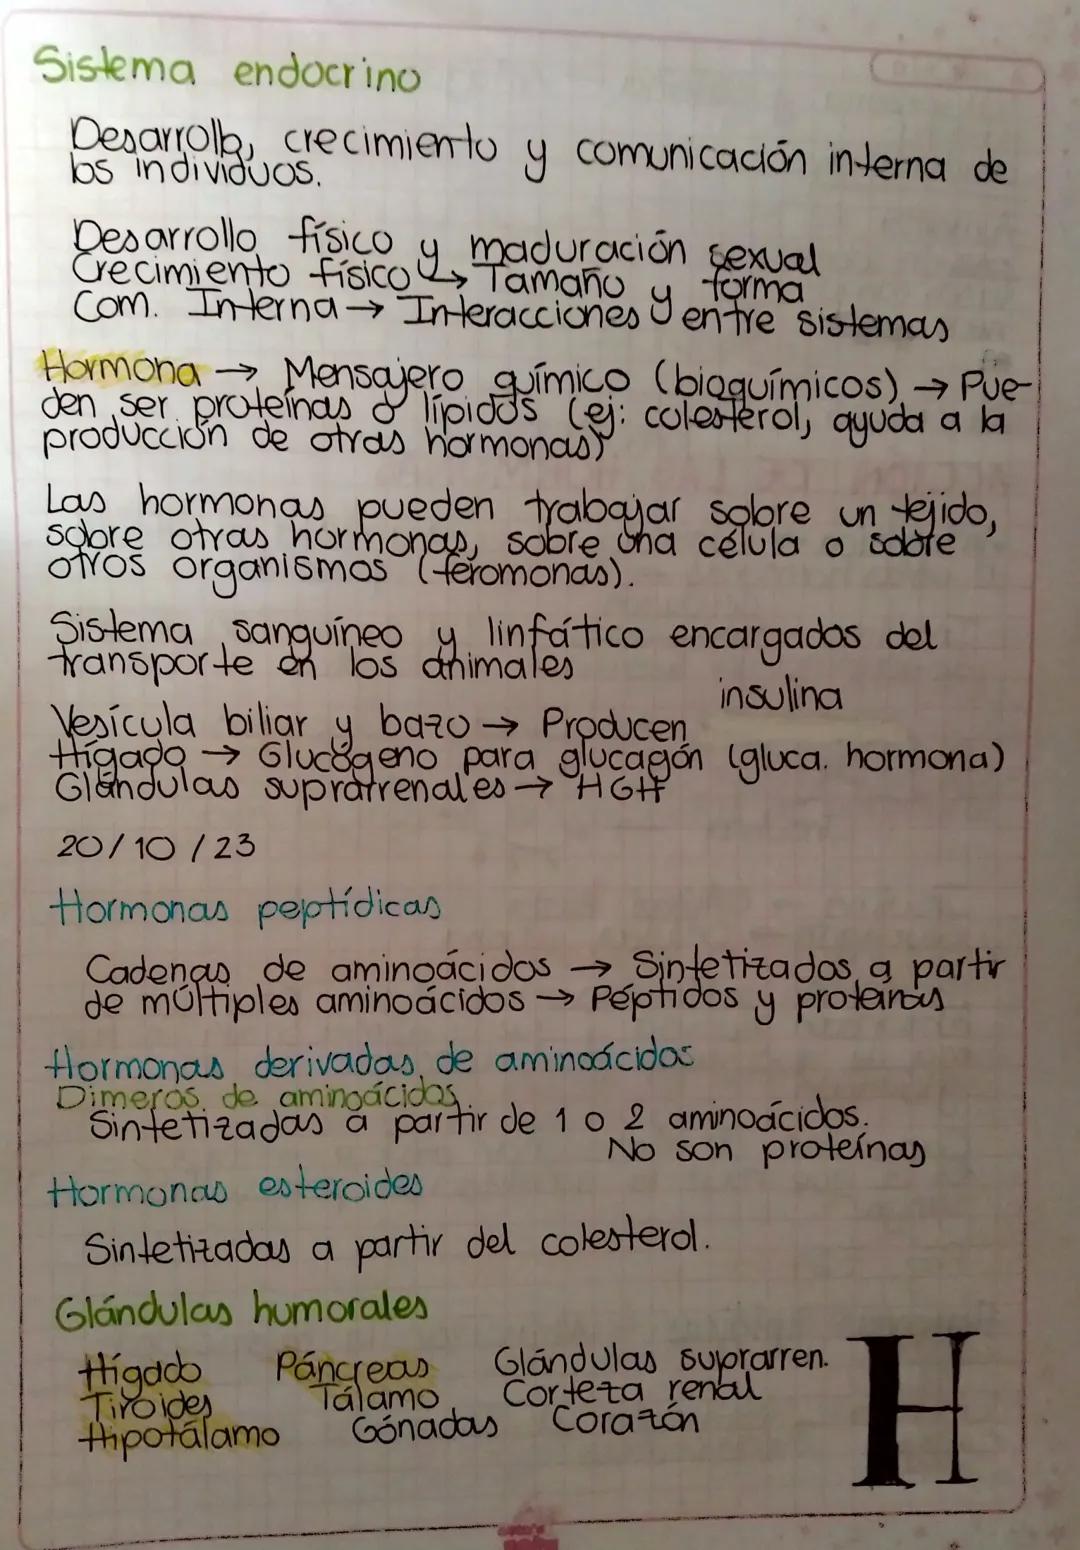 Sistema endocrino
Desarrollo, crecimiento y comunicación interna de
los individuos.
Desarrollo físico y maduración sexual
Crecimiento físico ↳ Tamaño y forma
Com. Interna → Interacciones entre sistemas
Hormona → Mensajero químico (bioquímicos) → Pue-
den ser proteínas o lípidos (ej: colesterol, ayuda a la
producción de otras hormonas)
Las hormonas pueden trabajar sobre un tejido,
sobre otras hormonas, sobre una célula o sobre
otros organismos (feromonas).
Sistema sanguíneo y linfático encargados del
transporte en los animales
insulina
Vesícula biliar y bazo → Producen
Hígado → Glucógeno para glucagón (gluca. hormona)
Glándulas suprarrenales → HGH
20/10/23
Hormonas peptídicas
Cadenas de aminoácidos → Sintetizados a partir
de múltiples aminoácidos → Péptidos y proteínas
Hormonas derivadas de aminoácidos
Dímeros de aminoácidos.
Sintetizadas a partir de 1 o 2 aminoácidos.
No son proteínas
Hormonas esteroides
Sintetizadas a partir del colesterol.
Glándulas humorales
Hígado Páncreas Glándulas suprarren.
Tiroides Tálamo Corteza renal
Hipotálamo Gónadas Corazón
H